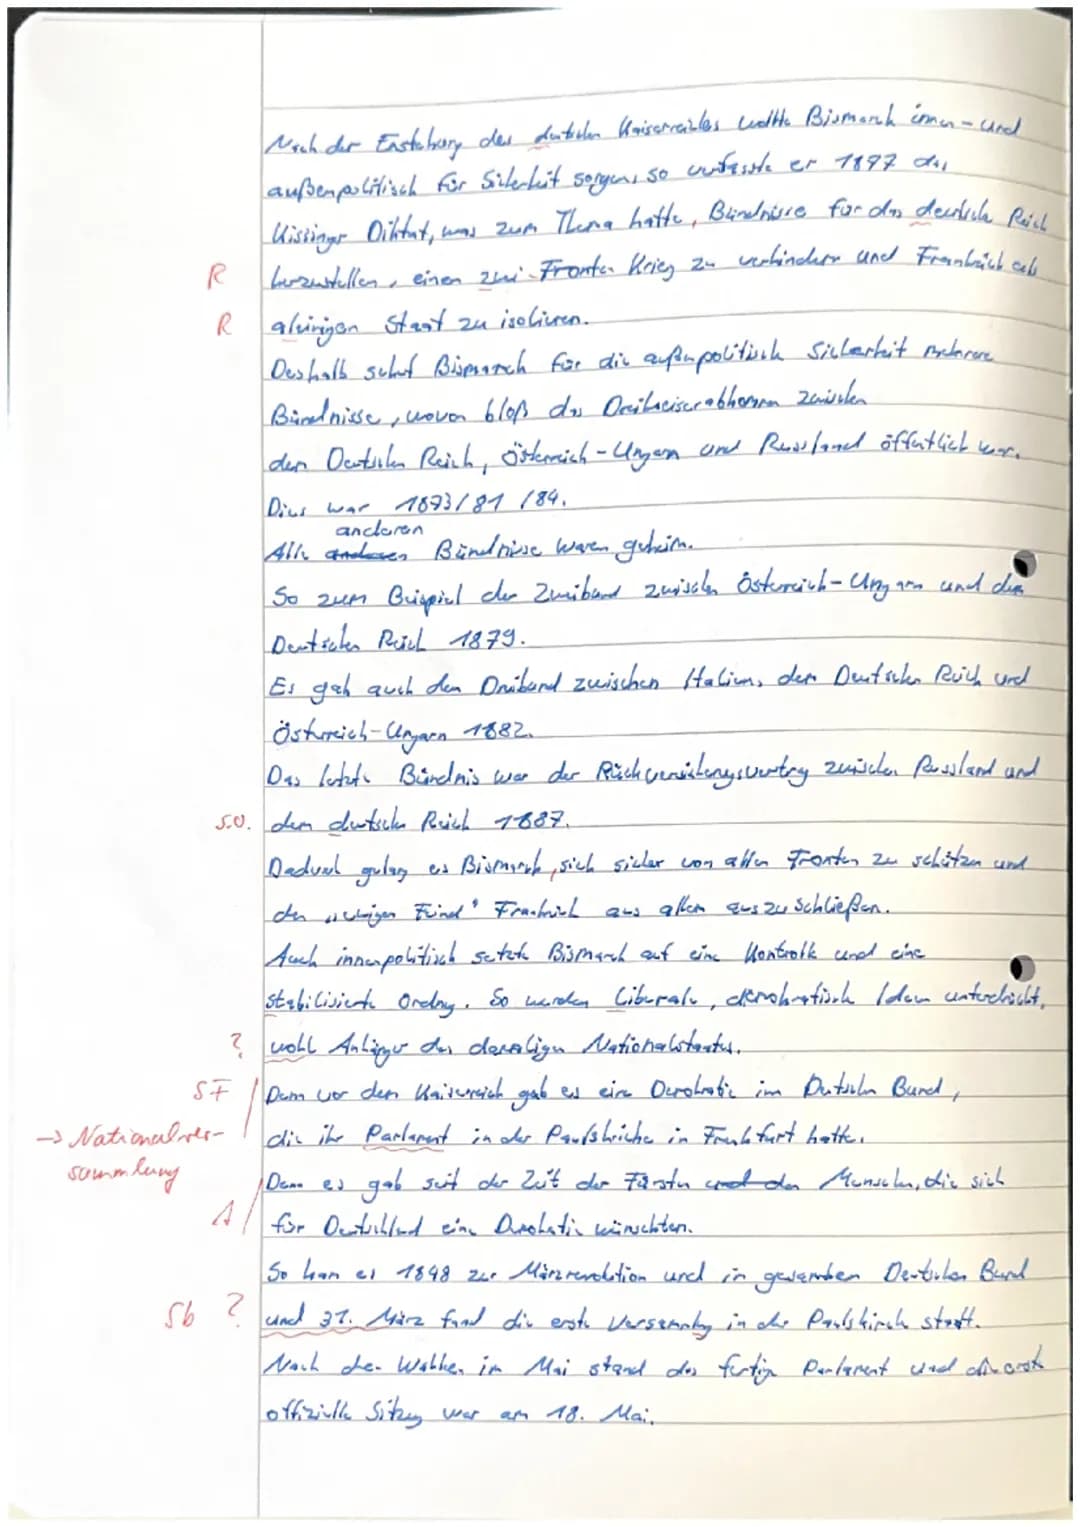 Nach der Enstehung des deutschen Kaiserreiches wollte Bismarck innen- und
außenpolitisch für Sicherheit sorgen, so verfasste er 1897 das
Kissinger Diktat, was zum Thema hatte, Bündnisse für das deutsche Reich
R herzustellen, einen zwei-Fronten Krieg zu verhindern und Frankreich als
R alleinigen Staat zu isolieren.
Deshalb schuf Bismarck für die außenpolitisch Sicherheit mehrere
Bündnisse, wovon bloß das Dreikaiserabkommen zwischen
dem Deutschen Reich, Österreich-Ungarn und Russland öffentlich war.
Dies war 1873/81/84.
anderen
Alle Bündnisse waren geheim.
So zum Beispiel der Zweibund zwischen Österreich-Ungarn und dem
Deutschen Reich 1879.
Es gab auch den Dreibund zwischen Italien, dem Deutschen Reich und
Österreich-Ungarn 1882.
Das letzte Bündnis war der Rückversicherungsvertrag zwischen Russland und
s.o. dem deutschen Reich 1887.
Dadurch gelang es Bismarck, sich sicher von allen Fronten zu schützen und
den „ewigen Feind“ Frankreich aus allem auszuschließen.
Auch innenpolitisch setzte Bismarck auf eine Kontrolle und eine
stabilisierte Ordnung. So wurden Liberale, demokratische Ideen unterdrückt,
? wohl Anhänger des damaligen Nationalstaates.
SF Denn vor dem Kaiserreich gab es eine Demokratie im Deutschen Bund,
→ Nationalver-
sammlung
die ihr Parlament in der Paulskirche in Frankfurt hatte.
Denn es gab seit der Zeit der Fürsten Menschen, die sich
A für Deutschland eine Demokratie wünschten.
So kam es 1848 zur Märzrevolution und im gesamten Deutschen Bund
Sb ? und 31. März fand die erste Versammlung in der Paulskirche statt.
Nach den Wahlen im Mai stand das fertige Parlament und die erste
offizielle Sitzung war am 18. Mai.